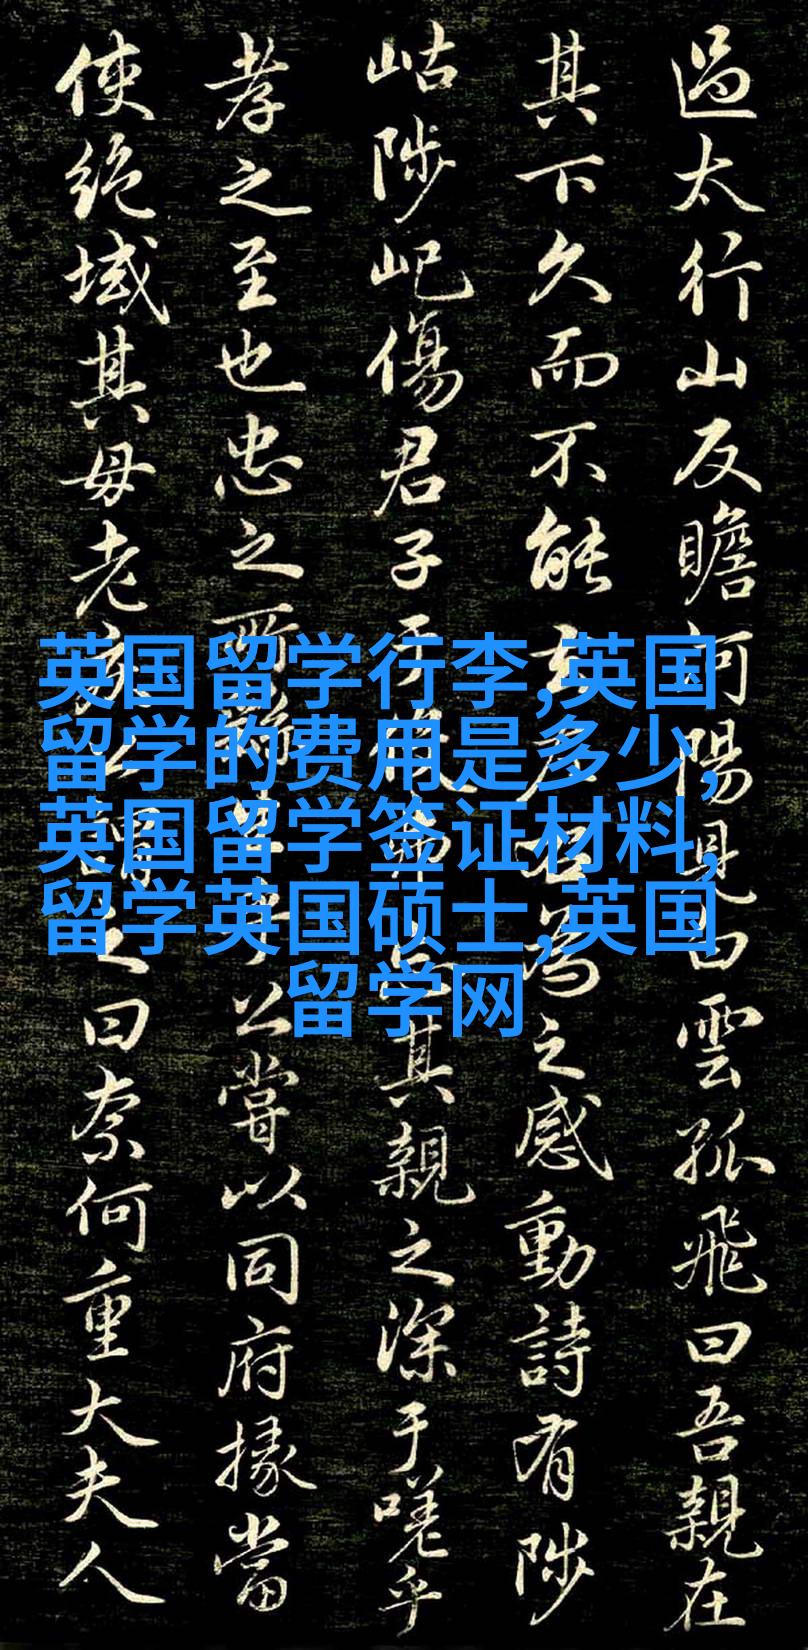 過太行山反瞻河陽見白雲孤飛曰吾親在
其下久而不能去左右為之感動詩有陟
岵陟屺傷君子于役弗忘其親之深于嗟乎
孝之至也忠之所生乎公嘗以同府掾當
使絕域其母老疾公謂之曰奈何重大夫人
英国留学行李,英国
留学的费用是多少,
英国留学签证材料,
留学英国硕士,英国
留学网